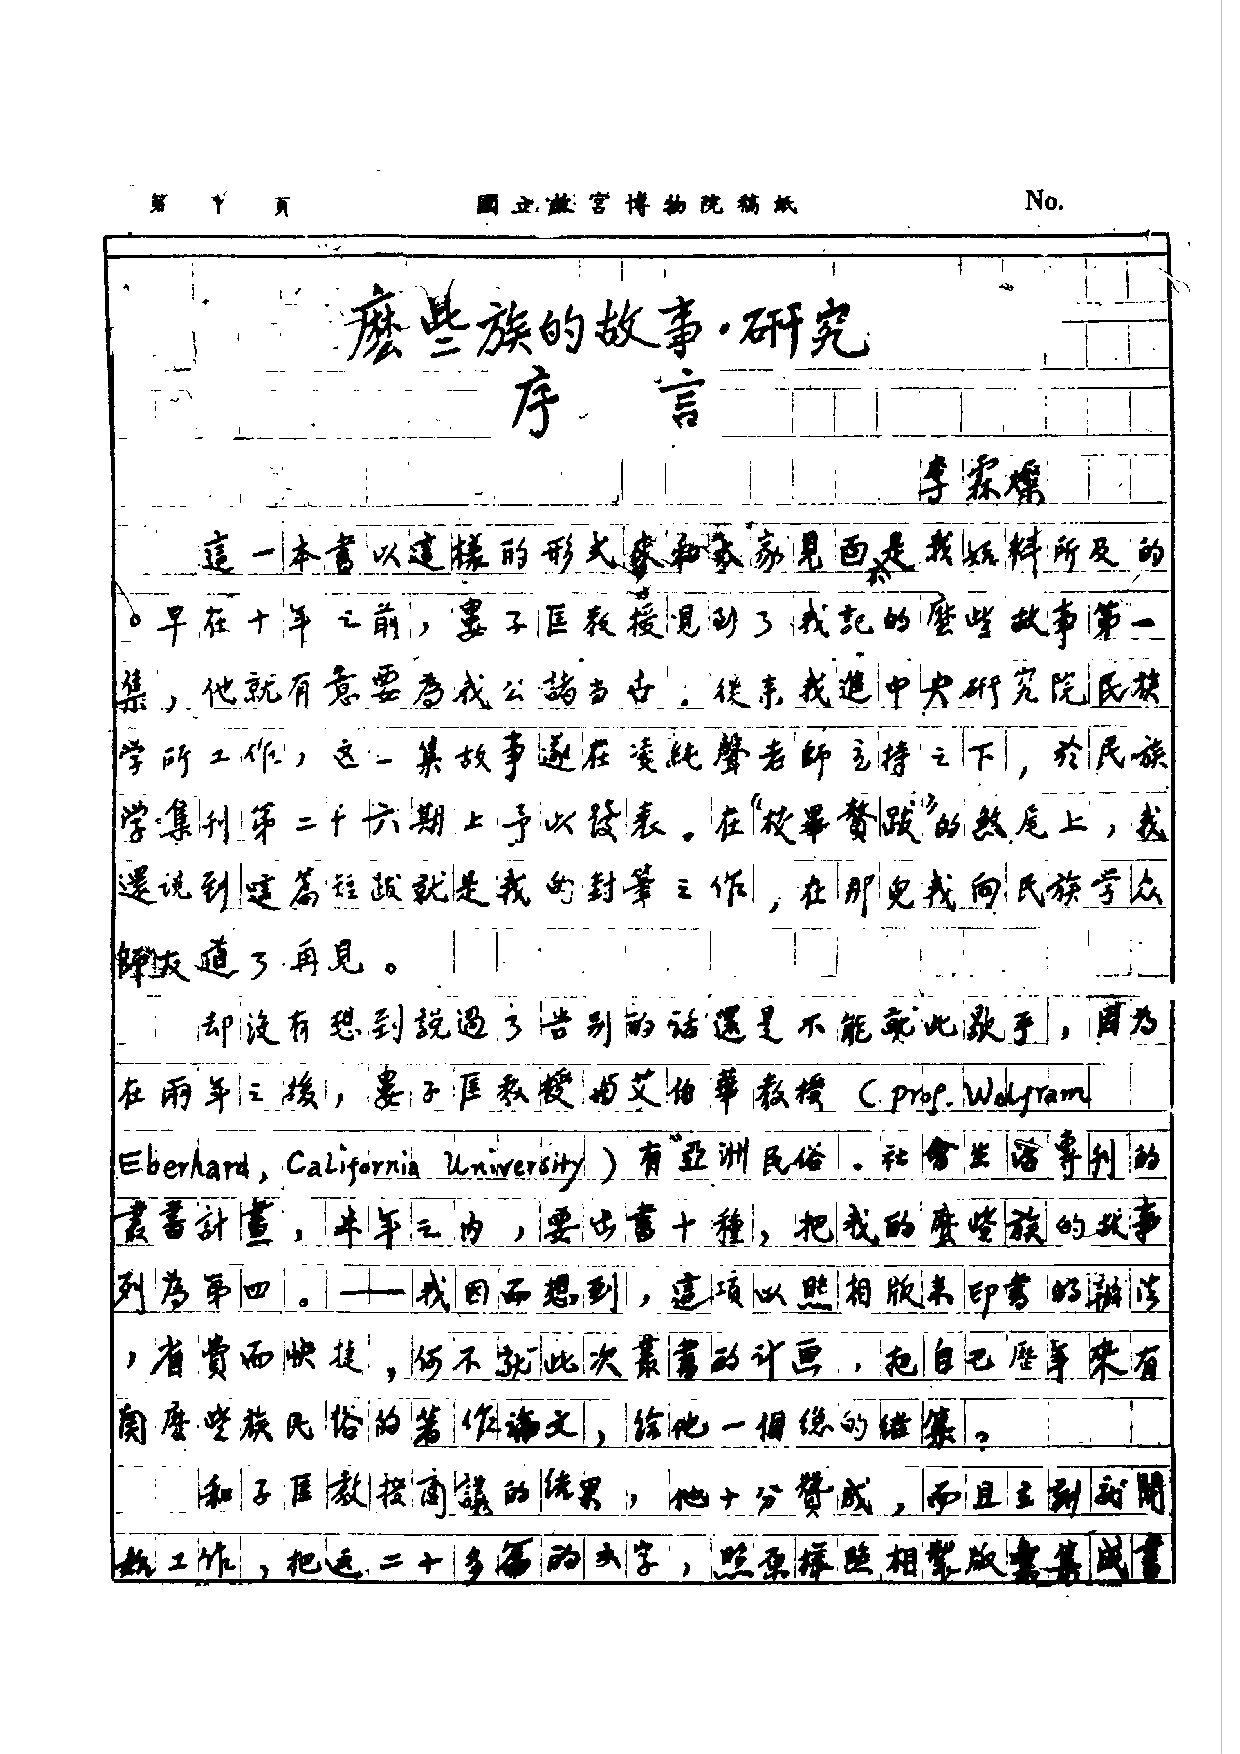 第 1 頁 國立故宮博物院稿紙 No.
麼些族的故事·研究
序 言
李霖燦
這一本書以這樣的形式來和大家見面是我始料所不及的
。早在十年之前，婁子匡教授見到了我記的麼些故事第一
集，他就有意要為我公諸當世。後來我進中央研究院民族
学所工作，这一集故事遂在凌純聲老師主持之下，於民族
学集刊第二十六期上予以發表。在“校畢贅跋”的煞尾上，我
還说到這篇短跋就是我的封筆之作，在那兒我向民族学众
師友道了再見。
却沒有想到說過了告别的話還是不能就此歇手，因為
在兩年之後，婁子匡教授與艾伯華教授（prof. Wolfram
Eberhard, California University）有“亞洲民俗．社會生活專刊的
叢書計畫，半年之内，要出書十種，把我的麼些族的故事
列為第四。——我因而想到，這項以照相版来印書的辦法
，省費而快捷，何不就此次叢書的计画，把自己歷年來有
関麼些族民俗的著作論文，給他一個總的結集。
和子匡教授商議的结果，他十分贊成，而且立刻就開
始工作，把这二十多篇的文字，照原樣照相製版集成書